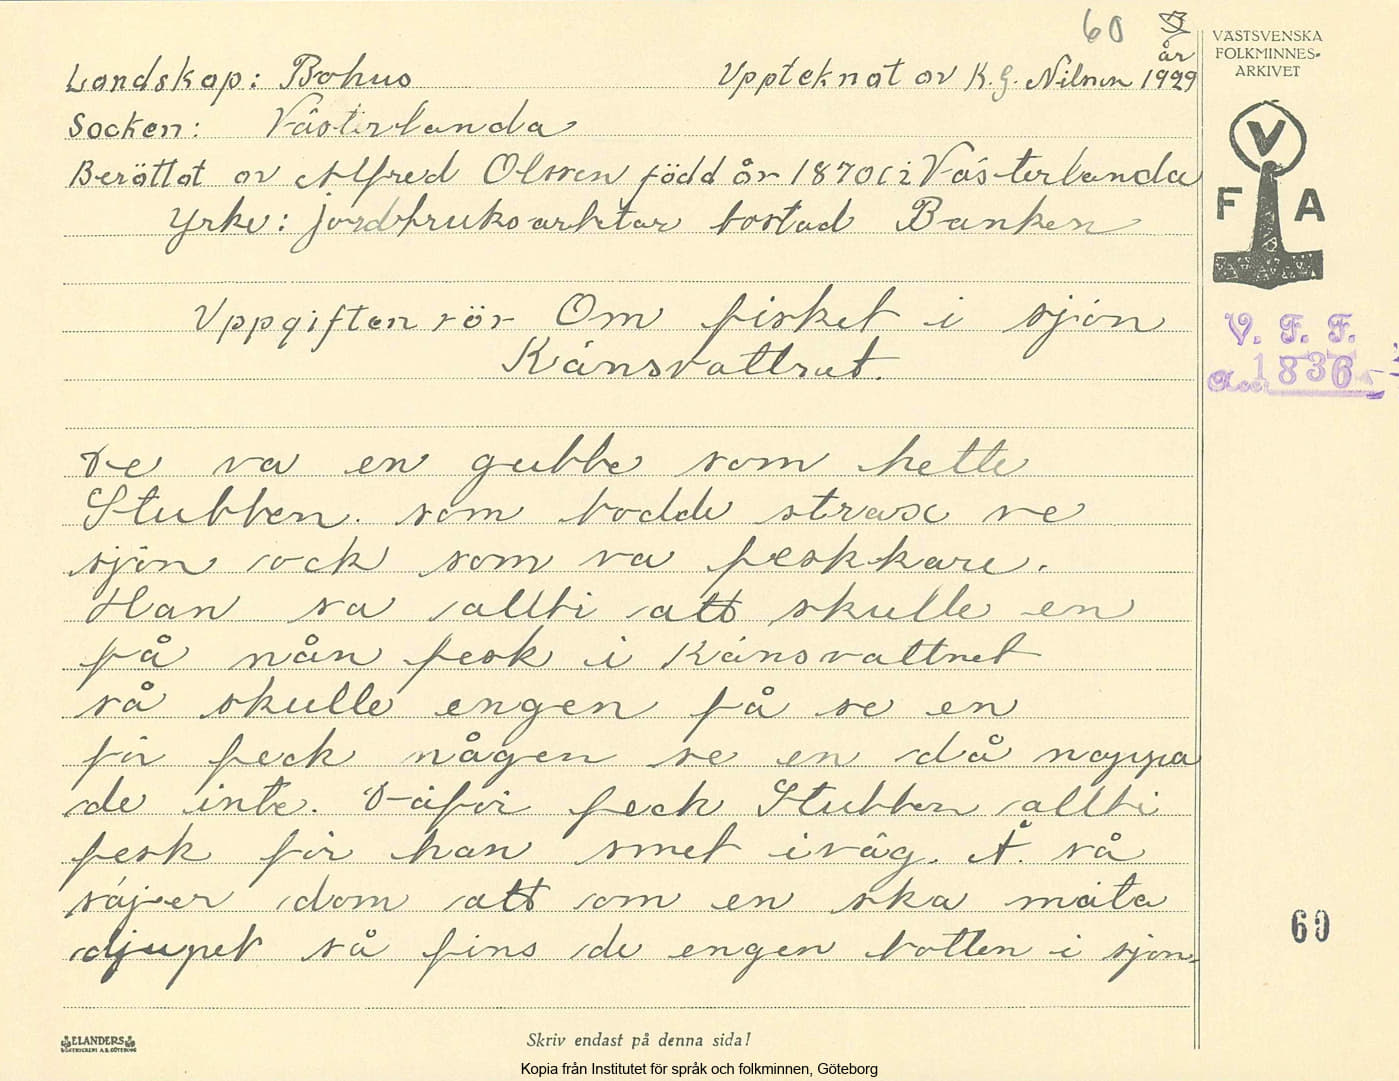 60
VÄSTSVENSKA
FOLKMINNES-
ARKIVET
år
Landskap: Bohus Upptecknat av K. G. Nilsson 1929
Socken: Västerlanda
Berättat av Alfred Olssen född år 1870 i Västerlanda
Yrke: jordbruksarbetar bostad Banken
V
F A
Uppgiften rör Om fisket i sjön
Känsvattnet.
V. F. F.
Acc 1836
De va en gubbe som hette
Stubben. som bodde strax ve
sjön ock som va feskkare.
Han sa allti att skulle en
få nån fesk i Känsvattnet
så skulle engen få se en
för feck någen se en då nappa
de inte. Däför feck Stubben allti
fesk för han smet iväg. Å. så
säjer dom att om en ska mäta
djupet så fins de engen botten i sjön-
60
ELANDERS
BOKTRYCKERI A.B. GÖTEBORG
Skriv endast på denna sida!
Kopia från Institutet för språk och folkminnen, Göteborg